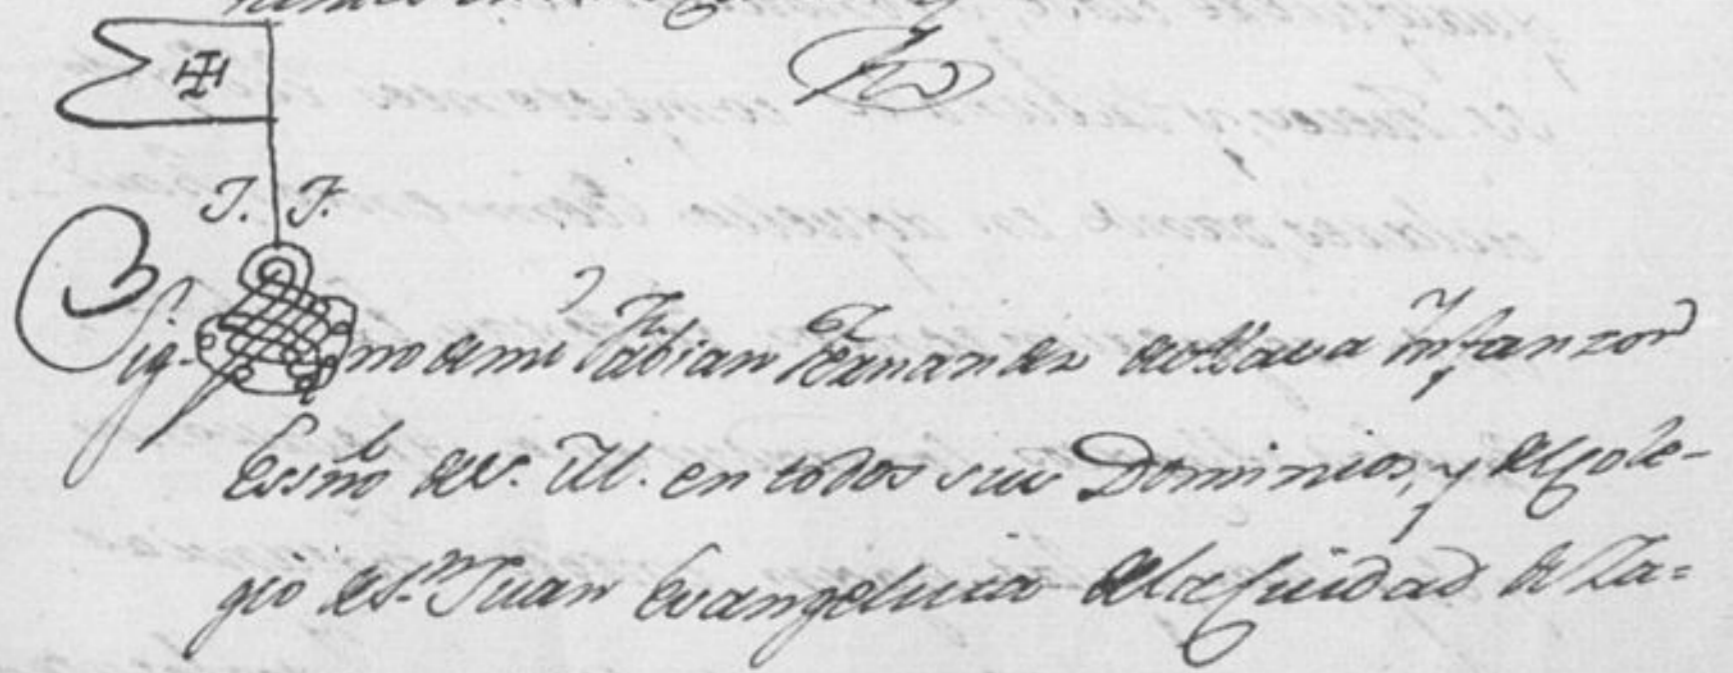 J. F.
Sig-no de mi Fabian Fernandez de Nava Infanzon
Essno de S. M. en todos sus Dominios, y del Cole-
gio de Sn. Juan Evangelista de la Ciudad de Za=